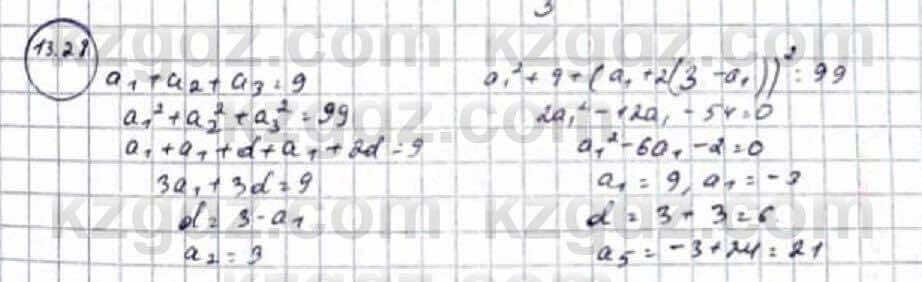 13.28
a₁ + a₂ + a₃ = 9
a₁² + a₂² + a₃² = 99
a₁ + a₁ + d + a₁ + 2d = 9
3a₁ + 3d = 9
d = 3 - a₁
a₂ = 3
a₁² + 9 + (a₁ + 2(3 - a₁))² = 99
2a₁² - 12a₁ - 54 = 0
a₁² - 6a₁ - 2 = 0
a₁ = 9, a₁ = -3
d = 3 + 3 = 6.
a₅ = -3 + 24 = 21
kzgdz.com kzgdz.com
kzgdz.com kzgdz.com